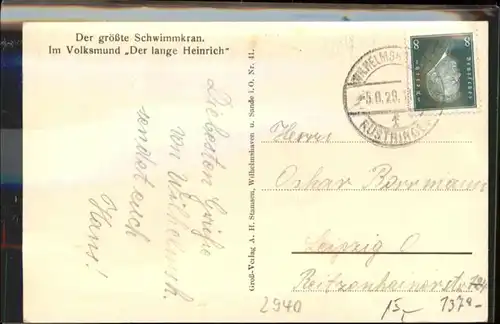 Der größte Schwimmkran.
Im Volksmund „Der lange Heinrich“
Die besten Grüße
von Wilhelmsh.
sendet euch
Hans!
Groß-Verlag A. H. Stamsen, Wilhelmshaven u. Sande i. O. Nr. 41.
RÜSTRINGEN
8 8
Deutsches Reich
Herrn
Oskar Borrmann
Leipzig O
Reitzenhainerstr.
2940
15,-